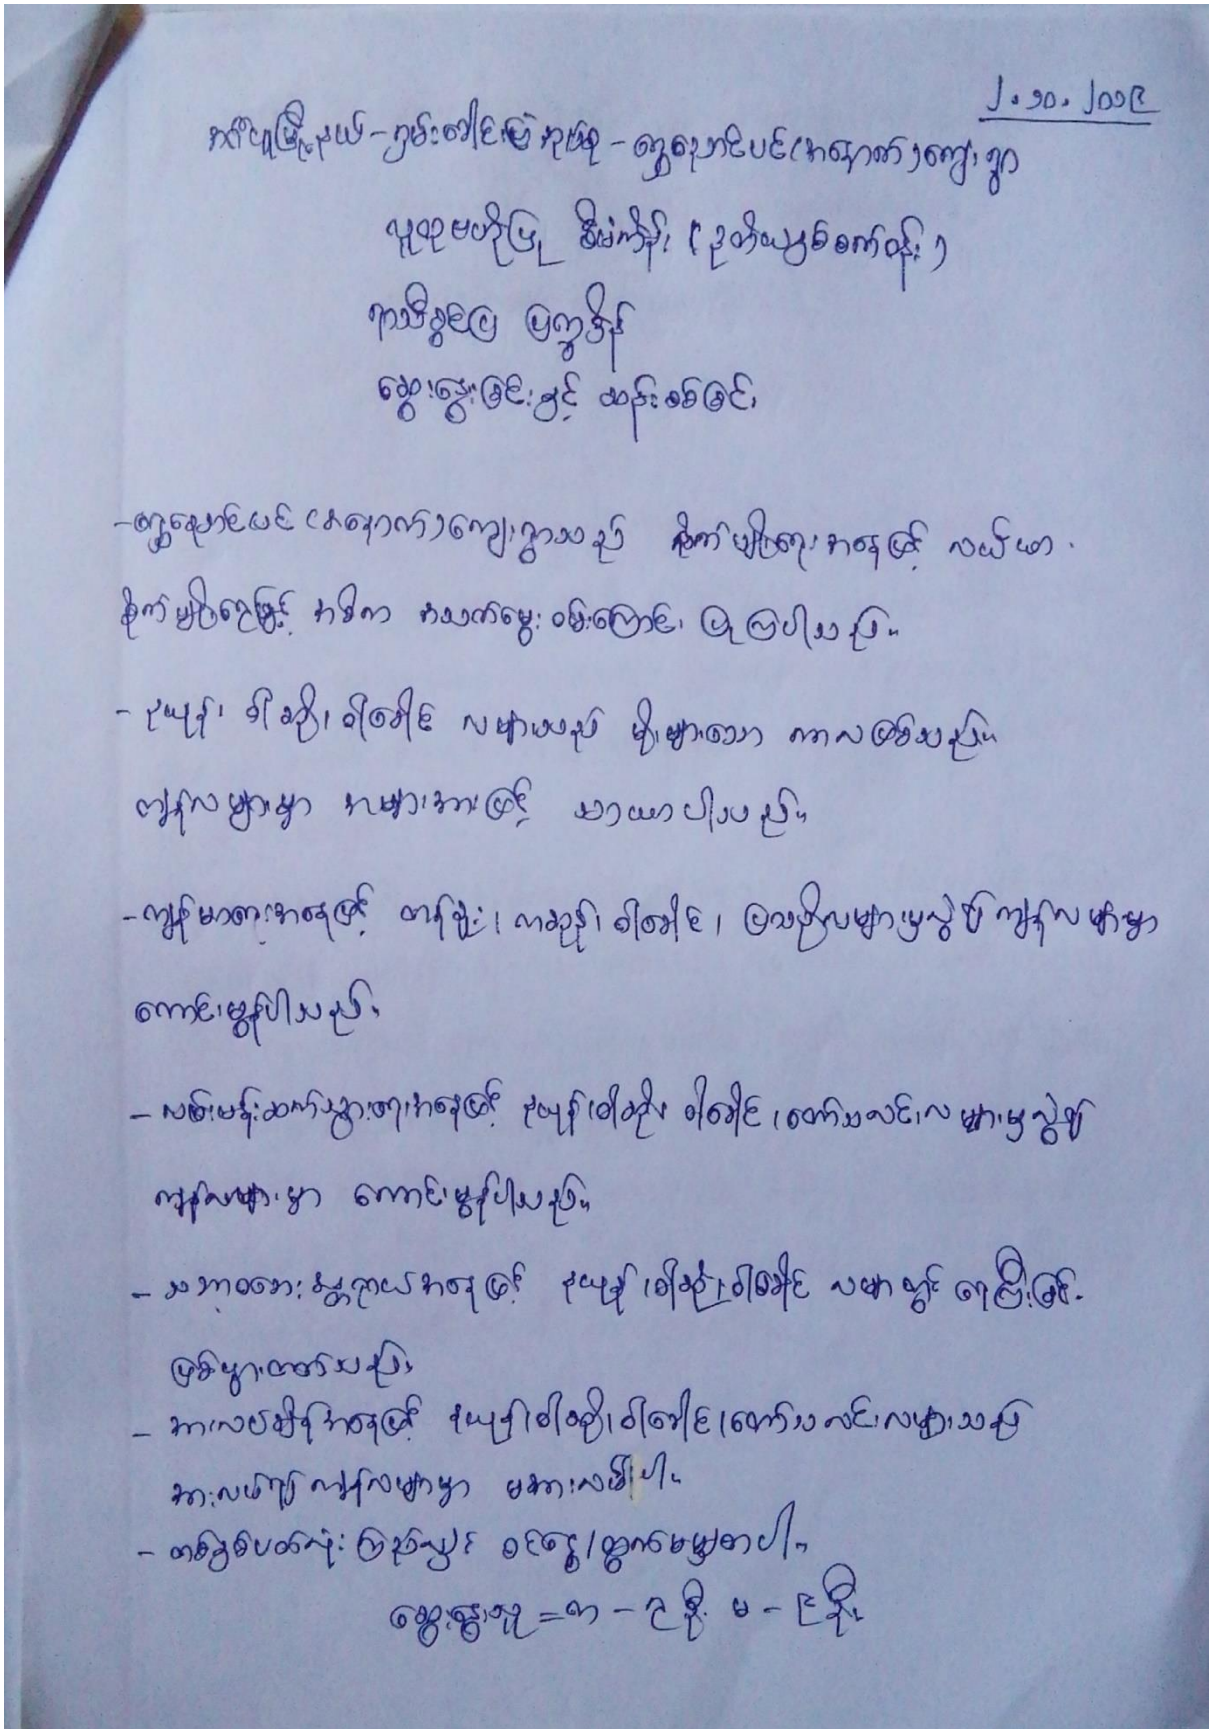 ၂.၁၀.၂၀၁၉
အင်ပူမြို့နယ် - ရှမ်းခေါင်းပြအုပ်စု - ရွှေညောင်ပင် (အနောက်) ကျေးရွာ
လူထုဗဟိုပြု စီမံကိန်း (ဒုတိယနှစ်စက်ဝန်း)
ရာသီခွင်ပြ ပြက္ခဒိန်
ဆွေးနွေးခြင်းနှင့် ဆန်းစစ်ခြင်း
- ရွှေညောင်ပင် (အနောက်) ကျေးရွာသည် စိုက်ပျိုးရေးအနေဖြင့် လယ်ယာ
စိုက်ပျိုးရေးဖြင့် အဓိက အသက်မွေးဝမ်းကြောင်းပြုကြပါသည်။
- နယုန်၊ ဝါဆို၊ ဝါခေါင် လများသည် မိုးများသော ကာလဖြစ်သည်။
ကျန်လများမှာ အများအားဖြင့် သာယာပါသည်။
- ကျန်းမာရေးအနေဖြင့် တန်ခူး၊ ကဆုန်၊ ဝါခေါင်၊ ပြာသိုလများမှလွဲ၍ ကျန်လများမှာ
ကောင်းမွန်ပါသည်။
- လမ်းပန်းဆက်သွယ်ရေးအနေဖြင့် နယုန်၊ ဝါဆို၊ ဝါခေါင်၊ တော်သလင်းလများမှလွဲ၍
ကျန်လများမှာ ကောင်းမွန်ပါသည်။
- သဘာဝဘေးအန္တရာယ်အနေဖြင့် နယုန်၊ ဝါဆို၊ ဝါခေါင် လများတွင် ရေကြီးခြင်း
ဖြစ်ပွားတတ်သည်။
- အားလပ်ချိန်အနေဖြင့် နယုန်၊ ဝါဆို၊ ဝါခေါင်၊ တော်သလင်းလများသည်
အားလပ်၍ ကျန်လများမှာ မအားလပ်ပါ။
- တစ်နှစ်ပတ်လုံး ကြည့်လျှင် ဝင်ငွေ/ထွက်ငွေမမျှတပါ။
ဆွေးနွေးသူ = ကျား - ၃ ဦး မ - ၉ ဦး